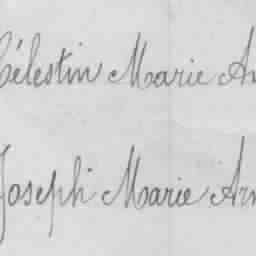 Célestin Marie Ar
Joseph Marie Arn